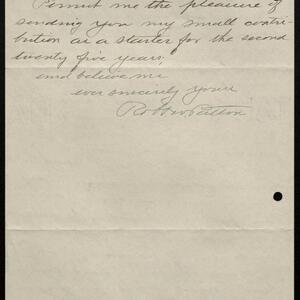 Permit me the pleasure of
sending you my small contri-
bution as a starter for the second
twenty five years,
and believe me
ever sincerely yours
Robt W Patton